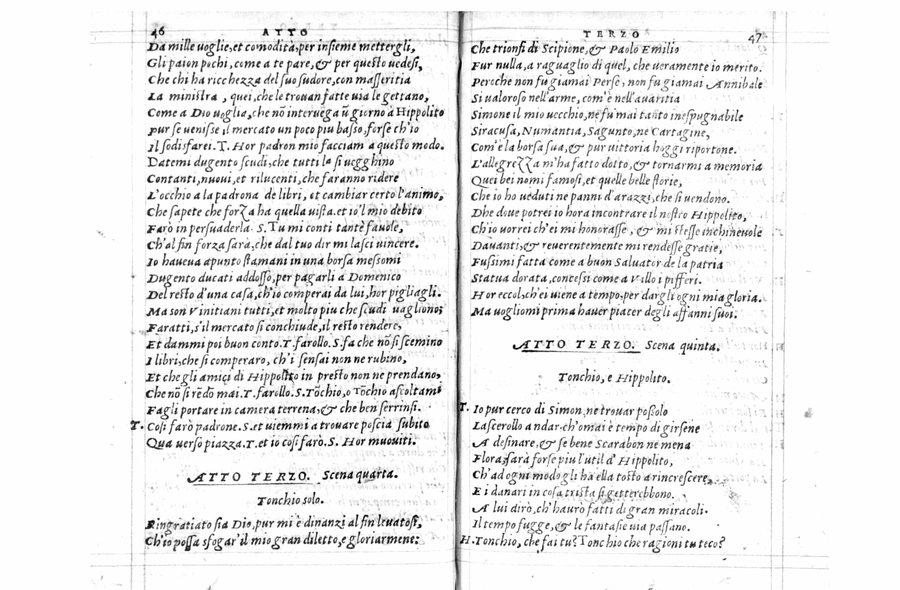 46 ATTO
Da mille voglie, et comodità, per insieme mettergli,
Gli paion pochi, come a te pare, & per questo vedesi,
Che chi ha ricchezza del suo sudore, con masseritia
La ministra, quei, che le trovan fatte via le gettano,
Come a Dio voglia, che nõ intervẽga ũ giorno à Hippolito
pur se venisse il mercato un poco piu basso, forse ch'io
Il sodisfarei. T. Hor padron mio facciam a questo modo.
Datemi dugento scudi, che tutti la si vegghino
Contanti, nuovi, et rilucenti, che faranno ridere
L'occhio a la padrona de libri, et cambiar certo l'animo,
Che sapete che forza ha quella vista. et io'l mio debito
Farò in persuaderla. S. Tu mi conti tante favole,
Ch'al fin forza sarà, che dal tuo dir mi lasci vincere.
Io haueva apunto stamani in una borsa messomi
Dugento ducati addosso, per pagarli a Domenico
Del resto d'una casa, ch'io comperai da lui, hor pigliagli.
Ma son Vinitiani tutti, et molto piu che scudi vagliono;
Faratti, s'il mercato si conchiude, il resto rendere,
Et dammi poi buon conto. T. farollo. S. fa che nõ si scemino
I libri, che si comperaro, ch'i sensai non ne rubino,
Et che gli amici di Hippolito in presto non ne prendano,
Che nõ si rẽdõ mai. T. farollo. S. Tõchio, o Tõchio ascoltami
Fagli portare in camera terrena, & che ben serrinsi.
T. Cosi farò padrone. S. et viemmi a trovare poscia subito
Qua verso piazza. T. et io cosi farò. S. Hor muoviti.
ATTO TERZO. Scena quarta.
Tonchio solo.
Ringratiato sia Dio, pur mi è dinanzi al fin levatosi,
Ch'io possa sfogar'il mio gran diletto, e gloriarmene:
TERZO 47
Che trionfi di Scipione, & Paolo Emilio
Fur nulla, a raguaglio di quel, che veramente io merito.
Perche non fu giamai Perse, non fu giamai Annibale
Si valoroso nell'arme, com'è nell'avaritia
Simone il mio vecchio, ne fu mai tanto inespugnabile
Siracusa, Numantia, Sagunto, ne Cartagine,
Com'è la borsa sua, & pur vittoria hoggi riportone.
L'allegrezza m'ha fatto dotto, & tornarmi a memoria
Quei bei nomi famosi, et quelle belle storie,
Che io ho veduti ne panni d'arazzi, che si vendono.
Dhe dove potrei io hora incontrare il nostro Hippolito,
Ch'io vorrei ch'ei mi honorasse, & mi stesse inchinevole
Davanti, & reverentemente mi rendesse gratie,
Fussimi fatta come a buon Salvator de la patria
Statua dorata, concessi come a Villo i pifferi.
Hor eccol, ch'ei viene a tempo, per dargli ogni mia gloria.
Ma vogliomi prima haver piacer degli affanni suoi.
ATTO TERZO. Scena quinta.
Tonchio, e Hippolito.
T. Io pur cerco di Simon, ne trovar possolo
Lascerollo andar. ch'omai è tempo di girsene
A desinare, & se bene Scarabon ne mena
Flora, sarà forse piu l'util d'Hippolito,
Ch'ad ogni modo gli ha ella tosto a rincrescere,
E i danari in cosa trista si getterebbono.
A lui dirò, ch'hauro fatti di gran miracoli.
Il tempo fugge, & le fantasie via passano.
H. Tonchio, che fai tu? Tonchio che ragioni tu teco?